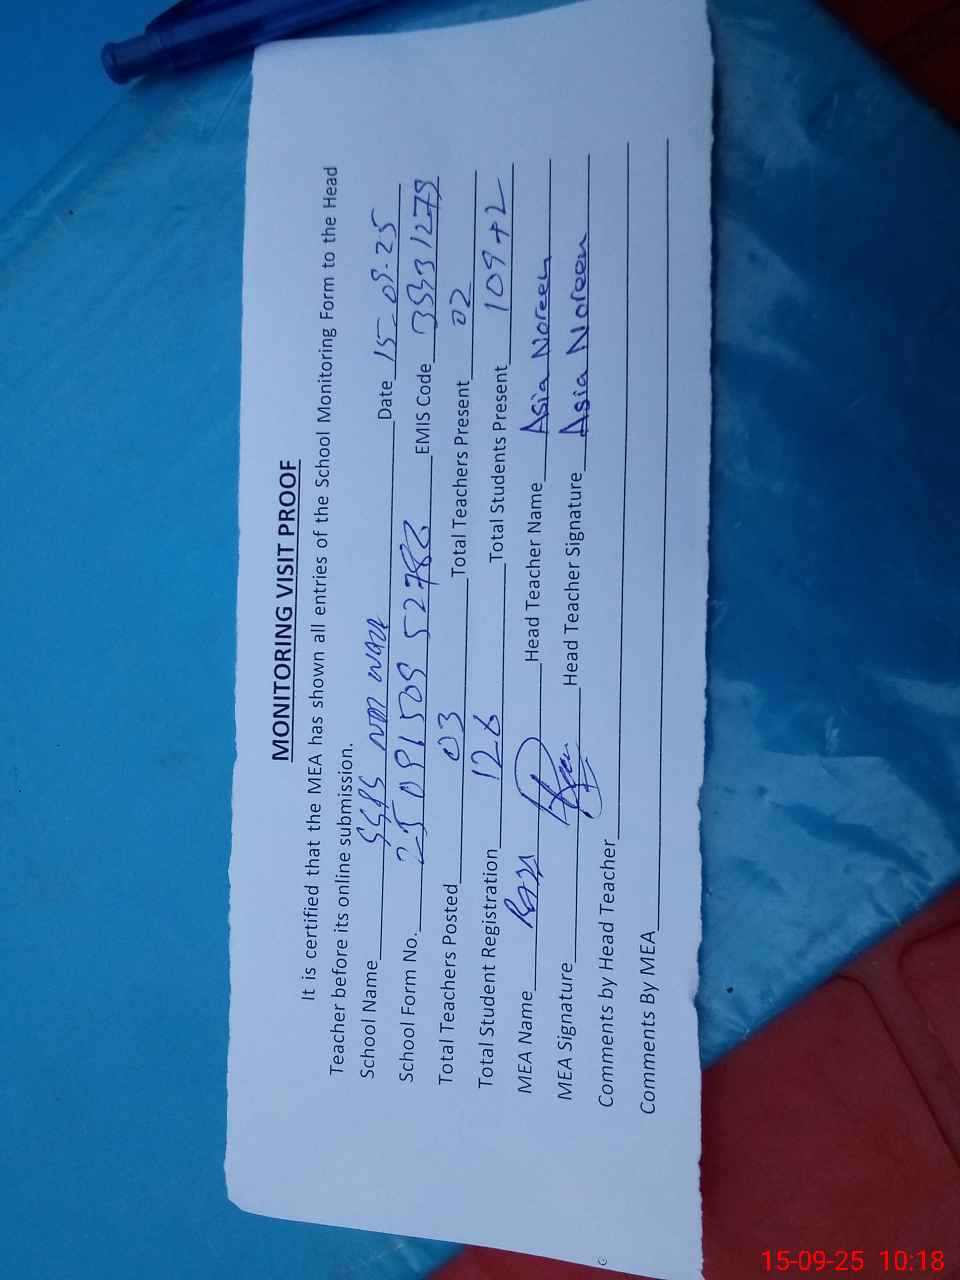 MONITORING VISIT PROOF
It is certified that the MEA has shown all entries of the School Monitoring Form to the Head
Teacher before its online submission.
School Name Date 15-09-25
School Form No. EMIS Code
Total Teachers Posted 03 Total Teachers Present 02
Total Student Registration 126 Total Students Present 109+2
MEA Name Head Teacher Name Asia Noreen
MEA Signature Head Teacher Signature Asia Noreen
Comments by Head Teacher
Comments By MEA
15-09-25 10:18